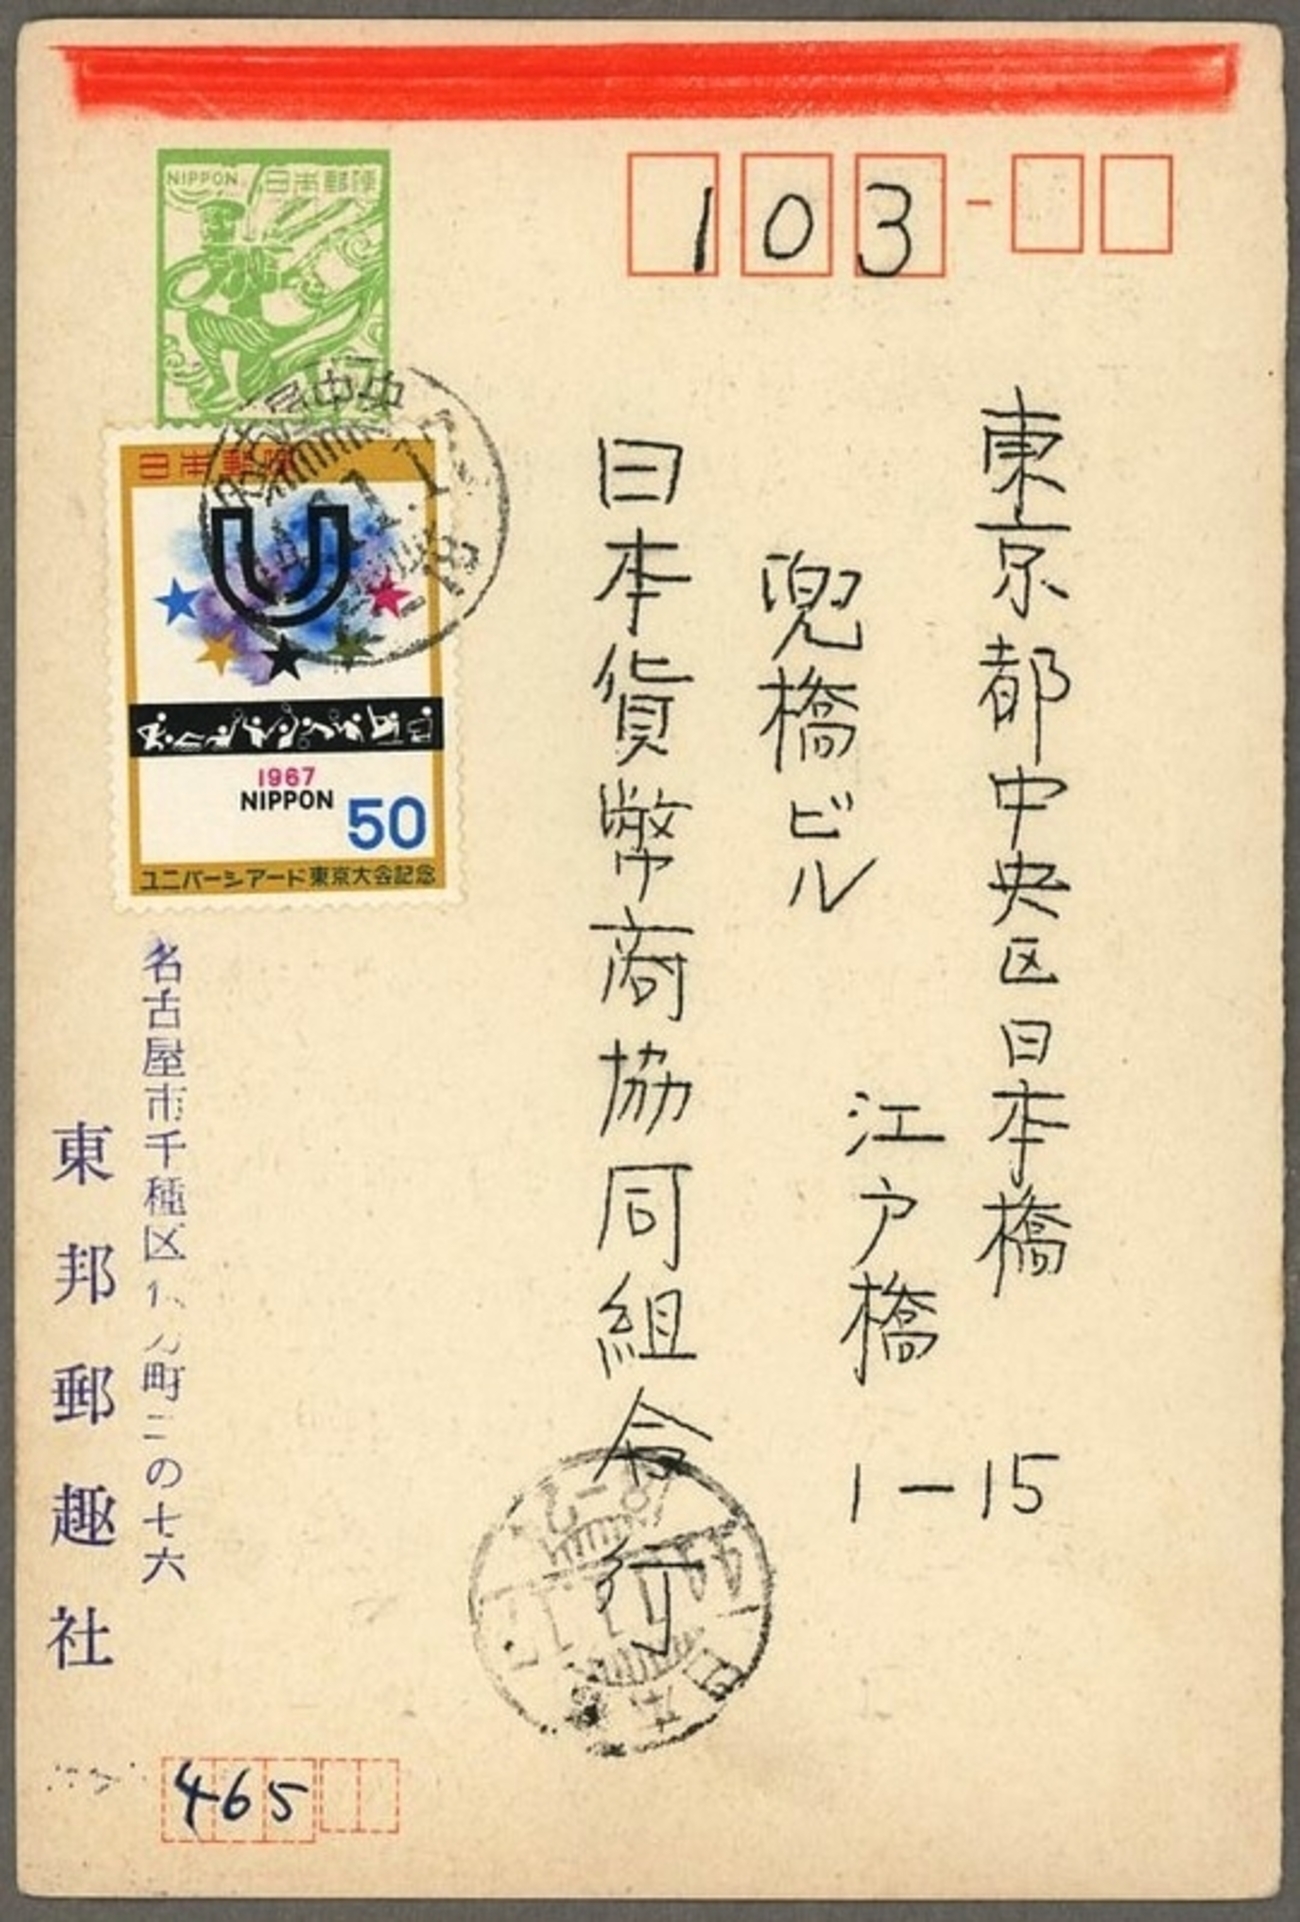 NIPPON 日本郵便
103
日本郵便
U
1967
NIPPON
50
ユニバーシアード東京大会記念
東京都中央区日本橋
江戸橋
1-15
兜橋ビル
日本貨幣商協同組合
行
名古屋市千種区
町二の七六
東邦郵趣社
465